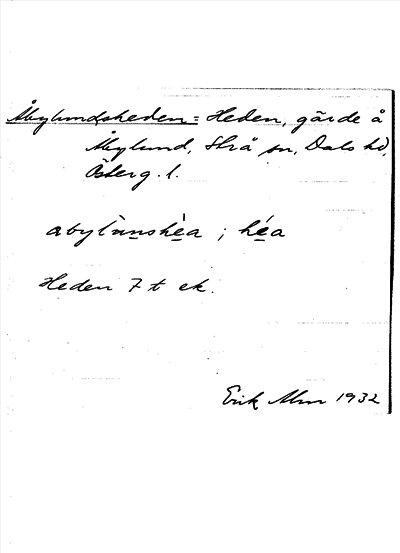 Åbylundsheden = Heden, gärde å
Åbylund, Strå sn, Dals hd,
Österg. l.
abylùnshèa ; héa
Heden 7 t ek.
Erik Alm 1932